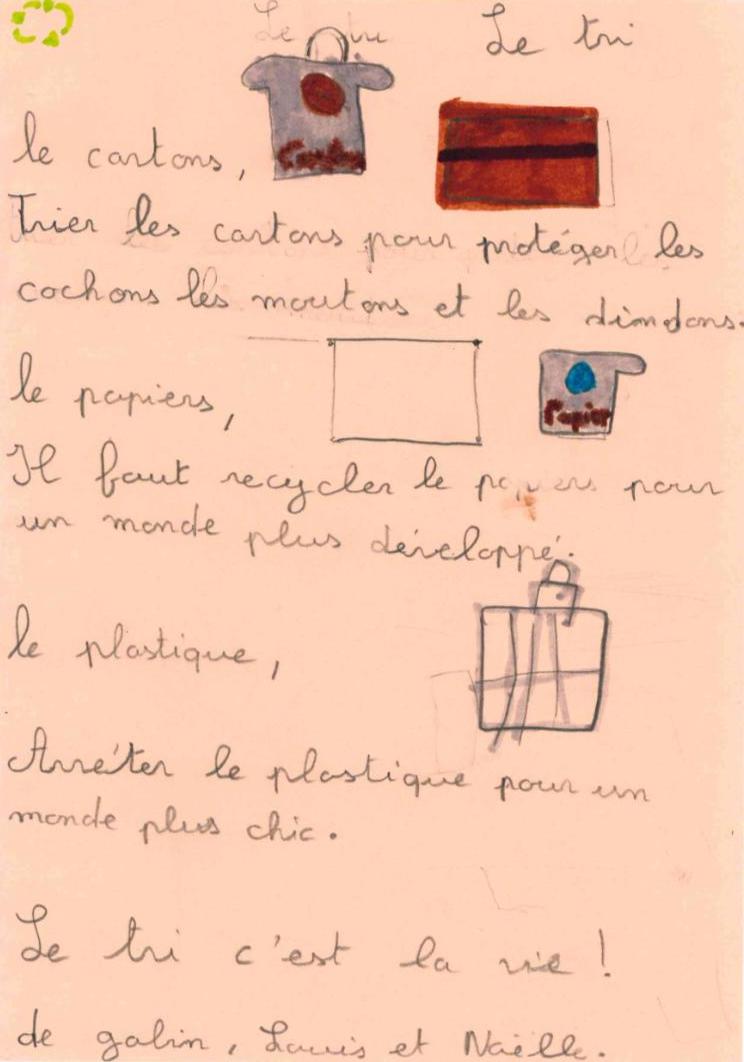 Le tri Le tri
Carton
le cartons,
Trier les cartons pour protéger les
cochons les moutons et les dindons.
le papiers,
Papier
Il faut recycler le papiers pour
un monde plus développé.
le plastique,
Arréter le plastique pour un
monde plus chic.
Le tri c'est la vie !
de gabin, Louis et Naëlle.